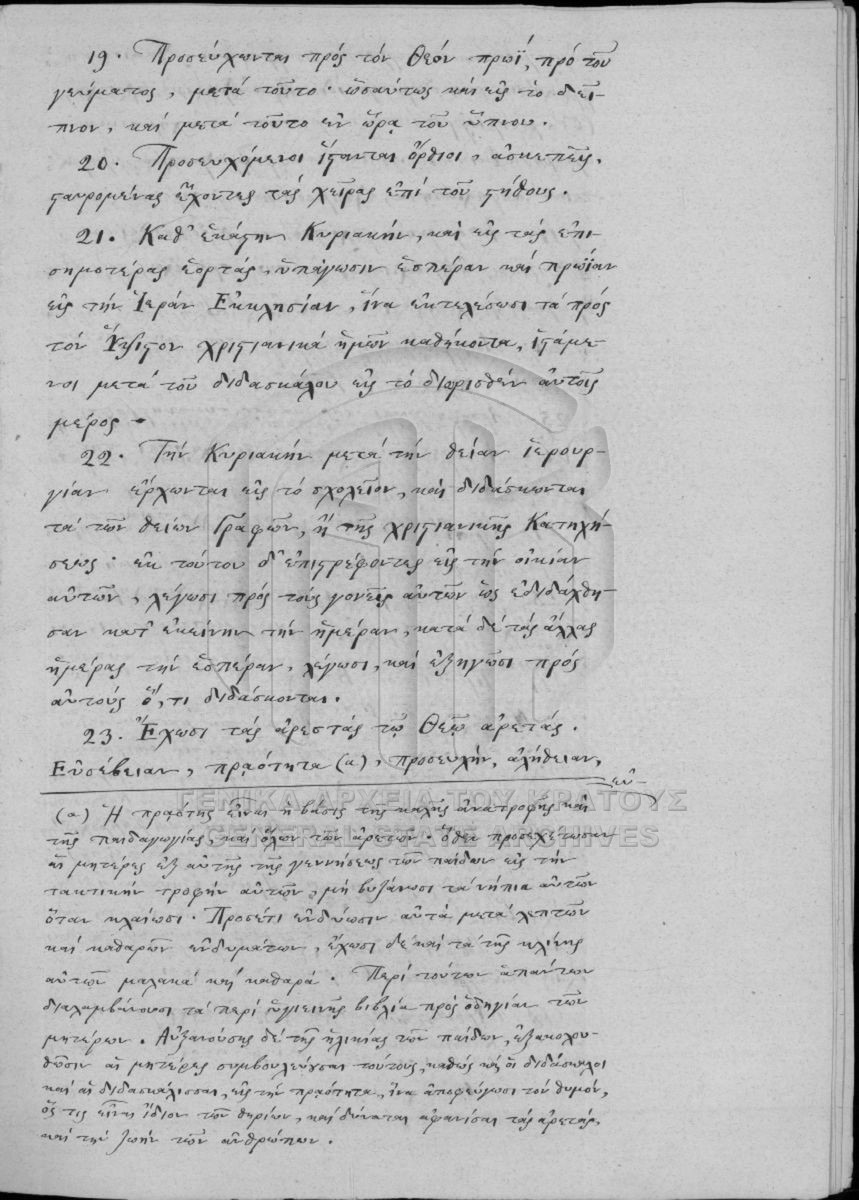 19. Προσεύχωνται πρός τόν Θεόν πρωΐ, πρό τοῦ
γεύματος, μετά τοῦτο· ὡσαύτως καί εἰς τό δεῖ-
πνον, καί μετά τοῦτο ἐν ὥρᾳ τοῦ ὕπνου.
20. Προσευχόμενοι ἵστανται ὄρθιοι, ἀσκεπεῖς,
σταυρομένας ἔχοντες τάς χεῖρας ἐπί τοῦ στήθους.
21. Καθ' ἑκάστην Κυριακήν, καί εἰς τάς ἐπι-
σημοτέρας ἑορτάς, ὑπάγωσιν ἑσπέραν καί πρωΐαν
εἰς τήν Ἱεράν Ἐκκλησίαν, ἵνα ἐκτελέσωσι τά πρός
τόν Ὕψιστον χριστιανικά ἡμῶν καθήκοντα, ἱστάμε-
νοι μετά τοῦ διδασκάλου εἰς τό διορισθέν αὐτοῖς
μέρος.
22. Τήν Κυριακήν μετά τήν θείαν ἱερουρ-
γίαν ἔρχωνται εἰς τό σχολεῖον, καί διδάσκωνται
τά τῶν θείων Γραφῶν, ἤ τῆς χριστιανικῆς Κατηχή-
σεως· ἐκ τούτου δ' ἐπιστρέφοντες εἰς τήν οἰκίαν
αὐτῶν, λέγωσι πρός τούς γονεῖς αὐτῶν ὅς ἐδιδάχθη-
σαν κατ' ἐκείνην τήν ἡμέραν, κατά δέ τάς ἄλλας
ἡμέρας τήν ἑσπέραν, λέγωσι, καί ἐξηγῶσι πρός
αὐτούς ὅ,τι διδάσκονται.
23. Ἔχωσι τάς ἀρεστάς τῷ Θεῷ ἀρετάς.
Εὐσέβειαν, πραότητα (α), προσευχήν, ἀλήθειαν,
εὐ-
(α) Ἡ πραότης εἶναι ἡ βάσις τῆς καλῆς ἀνατροφῆς καί
τῆς παιδαγωγίας, καί ὅλων τῶν ἀρετῶν. ὅθεν προσεχέτωσαν
αἱ μητέρες ἐξ αὐτῆς τῆς γεννήσεως τῶν παίδων εἰς τήν
τακτικήν τροφήν αὐτῶν, μή βυζάνωσι τά νήπια αὐτῶν
ὅταν κλαίωσι. Προσέτι ἐνδύωσιν αὐτά μετά λεπτῶν
καί καθαρῶν ἐνδυμάτων, ἔχωσι δέ καί τά τῆς κλίνης
αὐτῶν μαλακά καί καθαρά. Περί τούτων ἁπάντων
διαλαμβάνουσι τά περί ὑγιεινῆς βιβλία πρός ὁδηγίαν τῶν
μητέρων. Αὐξανούσης δέ τῆς ἡλικίας τῶν παίδων, ἐξακολου-
θῶσιν αἱ μητέρες συμβουλεύουσαι τούτους, καθώς καί οἱ διδάσκαλοι
καί αἱ διδασκάλισσαι, εἰς τήν πραότητα, ἵνα ἀποφεύγωσι τόν θυμόν,
ὅς τις εἶναι ἴδιον τῶν θηρίων, καί δύναται ἀφανίσαι τάς ἀρετάς,
καί τήν ζωήν τῶν ἀνθρώπων.
ΓΕΝΙΚΑ ΑΡΧΕΙΑ ΤΟΥ ΚΡΑΤΟΥΣ
GENERAL STATE ARCHIVES